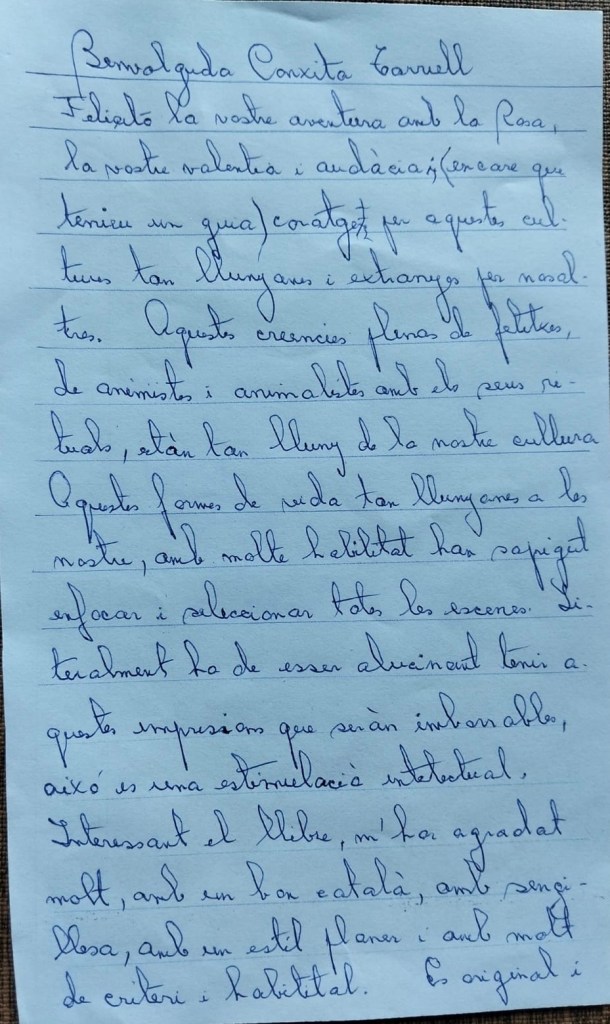 Benvolguda Conxita Tarruell
Felicito la vostre aventura amb la Rosa,
la vostre valentia i audàcia, (encare que
tenieu un guia) coratge per aquestes cul-
tures tan llunyanes i extranyes per nosal-
tres. Aquestes creencies plenas de fetitxes,
de animistes i animalistes amb els seus ri-
tuals, están tan lluny de la nostre cultura
Aquestes formes de vida tan llunyanes a les
nostre, amb molte habilitat han sapigut
enfocar i seleccionar totes les escenes. Li-
teralment ha de esser alucinant tenir a-
questes impresions que seràn imborrables,
aixó es una estimulació intelectual.
Interessant el llibre, m'ha agradat
molt, amb un bon català, amb sengi-
llesa, amb un estil planer i amb molt
de criteri i habilitat. Es original i